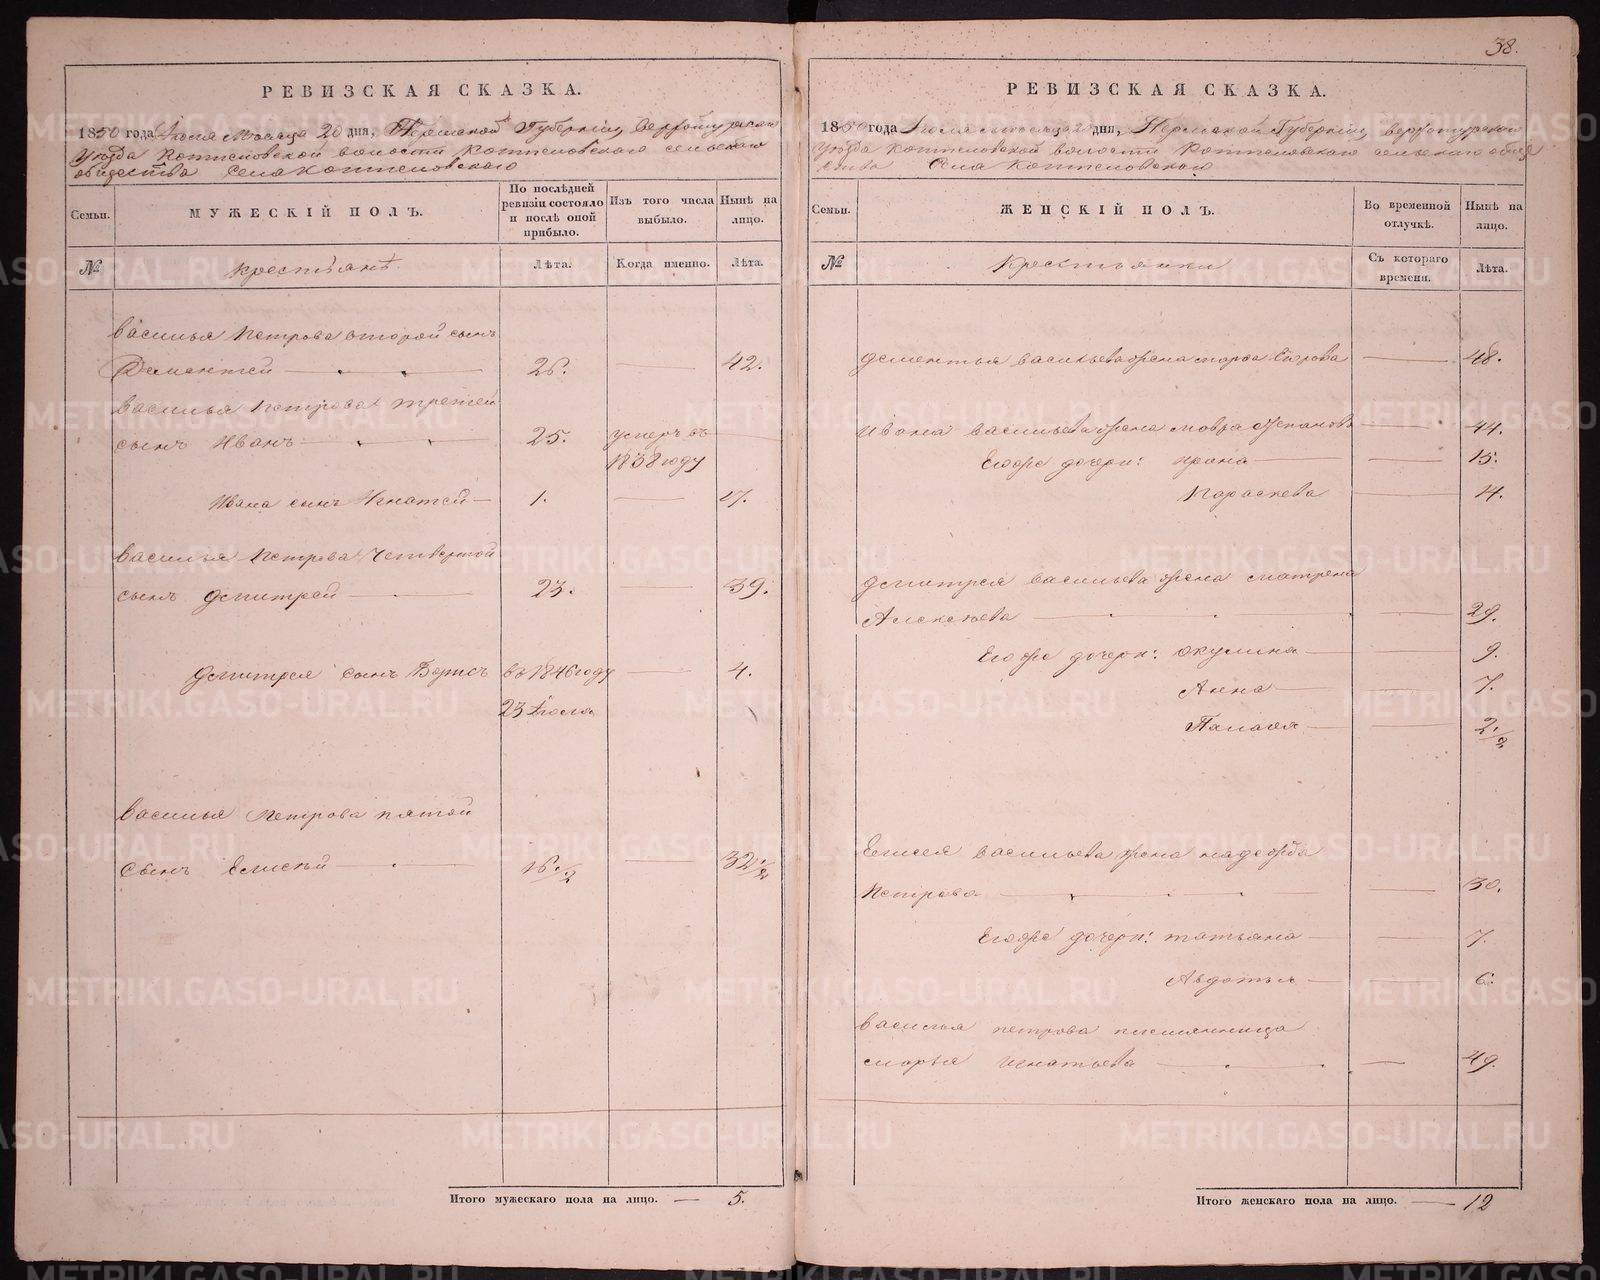 38.
РЕВИЗСКАЯ СКАЗКА.
1850 года Июля месяца 20 дня, Пермской Губернiи Верхотурскаго
уезда Коптеловской волости Коптеловскаго сельскаго
общества Села Коптеловскаго
Семьи.
МУЖЕСКIЙ ПОЛЪ.
По послѣдней ревизiи состояло и послѣ оной прибыло.
Изъ того числа выбыло.
Нынѣ на лицо.
№
Крестьянѣ
Лѣта.
Когда именно.
Лѣта.
Василья Петрова второй сынъ
Дементей 26. 42.
Василья Петрова третей
сынъ Иванъ 25. умеръ въ
1838 году
Ивана сынъ Игнатей 1. 17.
Василья Петрова четвертой
сынъ Дмитрей 23. 39.
Дмитрея сынъ Борисъ въ 1846 году 4.
23 Июля
Василья Петрова пятой
сынъ Елисѣй 16. 1/2 32. 1/2
Итого мужескаго пола на лицо. — 5.
РЕВИЗСКАЯ СКАЗКА.
1850 года Июля месяца 20 дня, Пермской Губернiи Верхотурскаго
уезда Коптеловской волости Коптеловскаго сельскаго общес
ства Села Коптеловскаго
Семьи.
ЖЕНСКIЙ ПОЛЪ.
Во временной отлучкѣ.
Нынѣ на лицо.
№
Крестьянки
Съ котораго времени.
Лѣта.
Дементья Васильева жена Марфа Егорова 48.
Ивана Васильева жена Мавра 44.
Егоже дочери: Ирина 15.
Параскева 4.
Дмитрея Васильева жена Матрена
Алексѣева 29.
Егоже дочери: Окулина 9.
Анна 7.
Палагя 2. 1/2
Елисея Васильева жена Надежда
Петрова 30.
Егоже дочери: Татьяна 7.
Авдотья 6.
Василья Петрова племянница
Марья Игнатьева 49.
Итого женскаго пола на лицо. — 12
METRIKI.GASO-URAL.RU